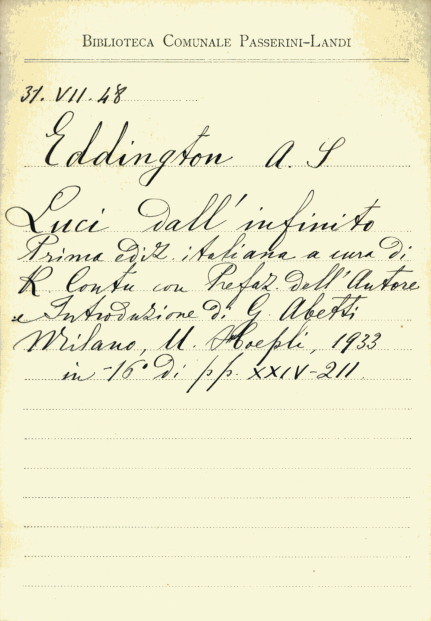 BIBLIOTECA COMUNALE PASSERINI-LANDI
31. VII. 48
Eddington A. S
Luci dall'infinito
Prima ediz. italiana a cura di
R. Contu con Prefaz. dell'Autore
e Introduzione di G. Abetti
Milano, U. Hoepli, 1933
in -16° di pp. XXIV-211.